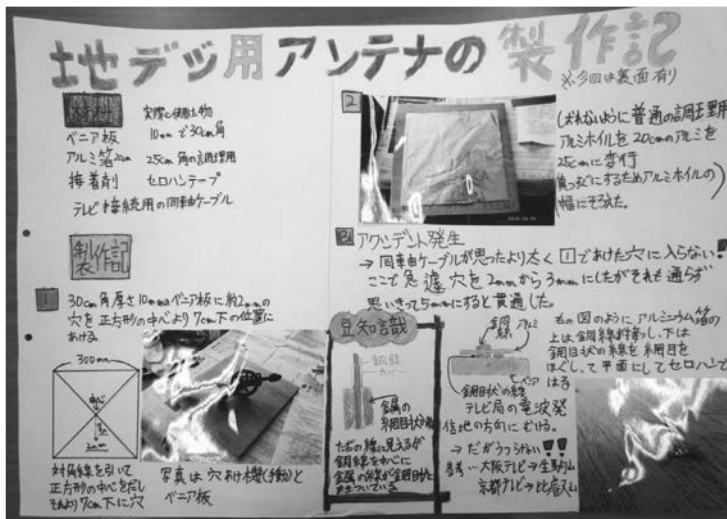 地デジ用アンテナの製作記
※今回は裏面有り
材料 実際に使用した物
ベニア板 10mmで30cm角
アルミ箔20cm 25cm角の調理用
接着剤 セロハンテープ
テレビ接続用の同軸ケーブル
製作記
1
30cm角厚さ10mmのベニア板に約2mmの
穴を正方形の中心より7cm下の位置に
あける
300mm
中心
7cm
2mm
対角線を引いて
正方形の中心をだし
それより7cm下に穴
写真は穴あけ機(手動)と
ベニア板
2
しおれないように普通の調理用
アルミホイルを20cmのアルミを
25cmに変行
真っすぐにするためアルミホイルの
幅にそろえた。
アクシデント発生
→同軸ケーブルが思ったより太く1であけた穴に入らない!!
ここで急遽穴を2mmから3mmにしたがそれも通らず
思いきって5mmにすると貫通した。
豆知識
銅線
カバー
金属の
網目状の線
ただの線に見えるが
銅線を中心に
金属の線が網目状に
銅線
アルミ
ベニア
網目状の線
右の図のようにアルミニウム箔の
上は銅線を接し、下は
網目状の線を網目を
ほぐして平面にしてセロハンで
はる
テレビ局の電波発
信地の方向にむける。
→だがうつらない!!
参考…大阪テレビ→生駒山
京都テレビ→比叡山